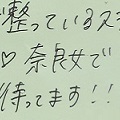 整っているス
♡奈良女で
待ってます!!